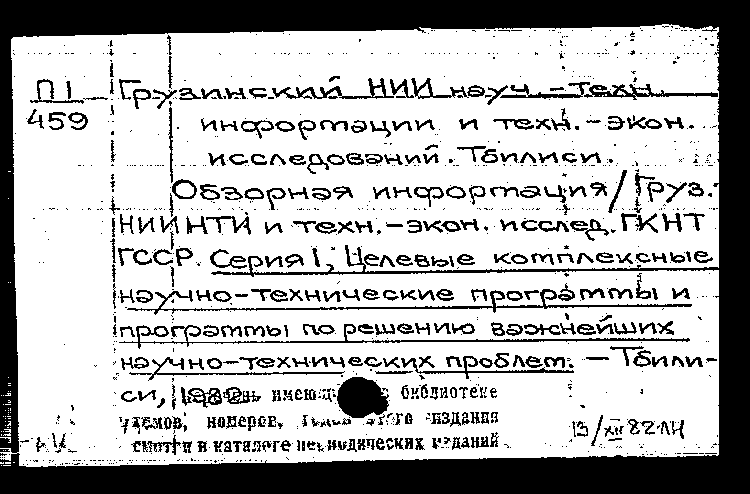 П1
459
Грузинский НИИ науч.-техн.
информации и техн.-экон.
исследований. Тбилиси.
Обзорная информация/Груз.
НИИНТИ и техн.-экон. исслед. ГКНТ
ГССР. Серия 1, Целевые комплексные
научно-технические программы и
программы по решению важнейших
научно-технических проблем. – Тбили-
си,
имею библиотеке
томов, номеров, этого издания
смотри в каталоге периодических изданий
13/XII 82